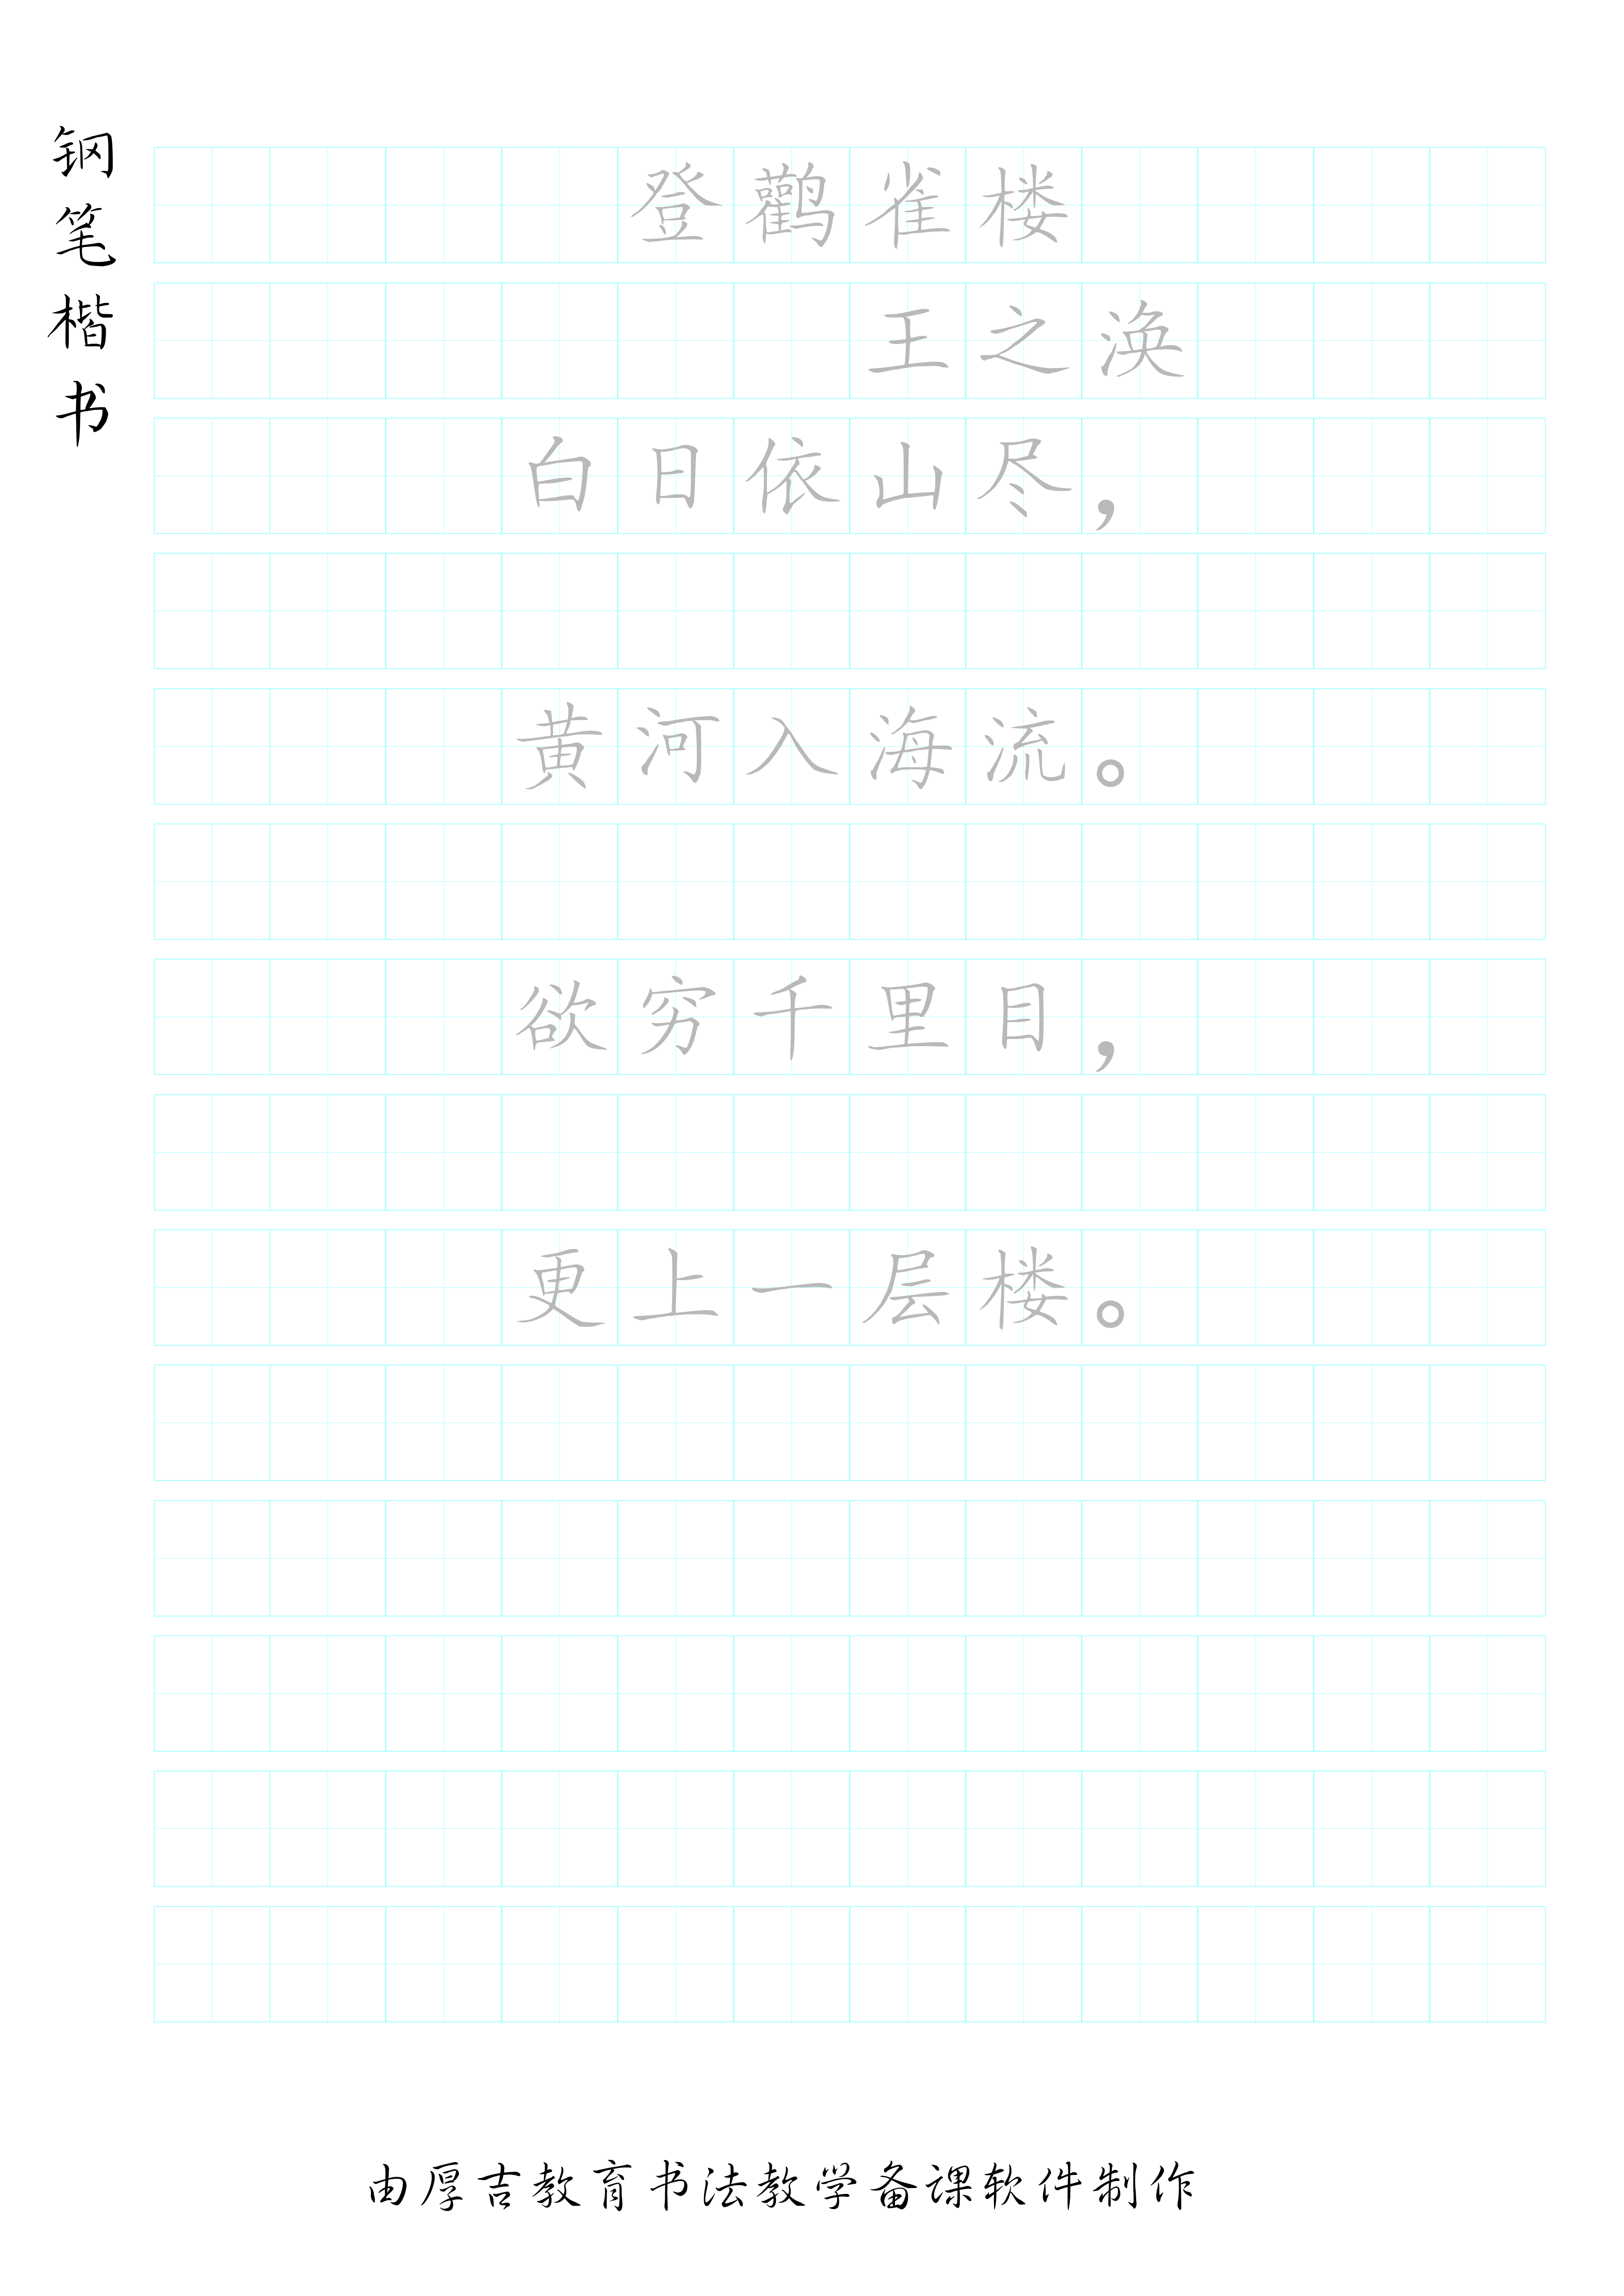 钢笔楷书
登鹳雀楼
王之涣
白日依山尽，
黄河入海流。
欲穷千里目，
更上一层楼。
由厚吉教育书法教学备课软件制作